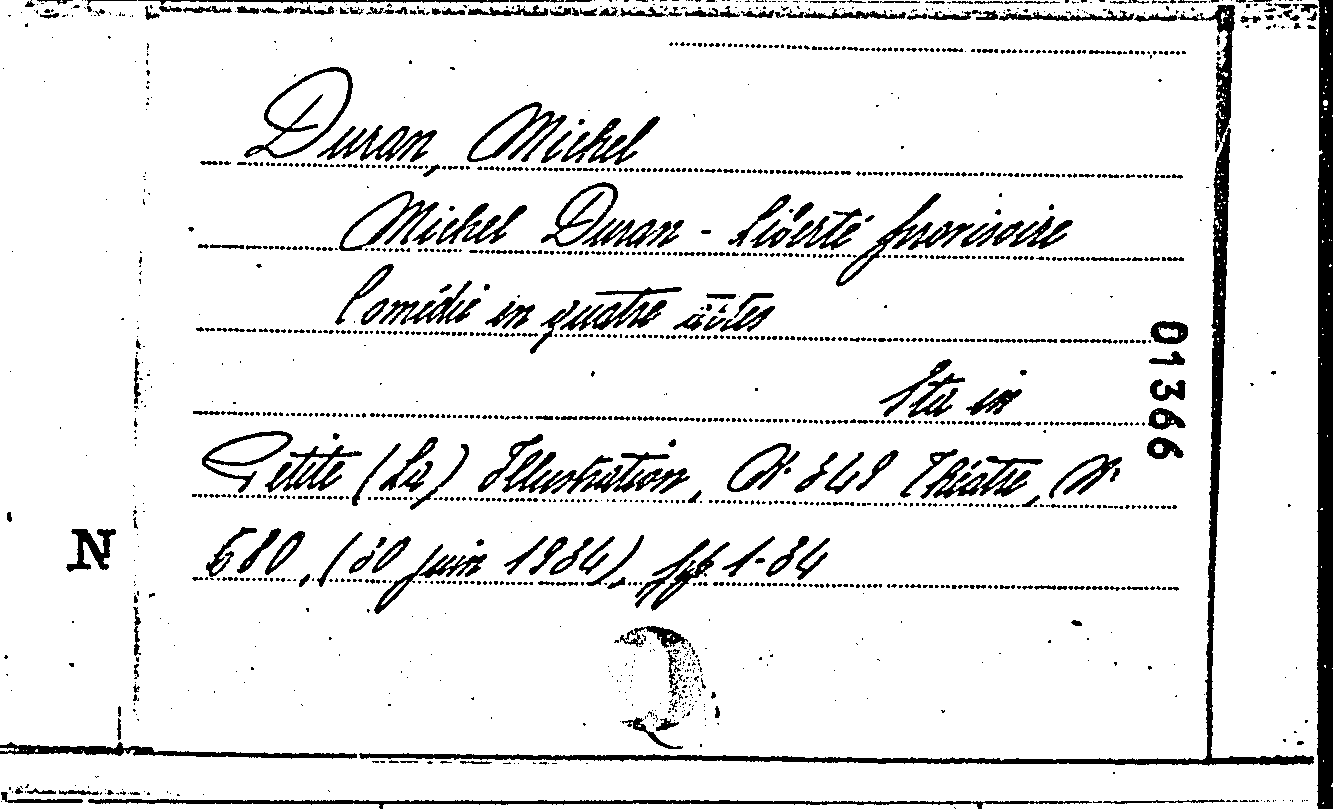 Duran, Michel
Michel Duran - Liberté provisoire
Comédie en quatre actes
Sta in
Petite (La) Illustration, N. 349 Théâtre, N.
680, (30 juin 1934), pp 1-34
01366
N
Q